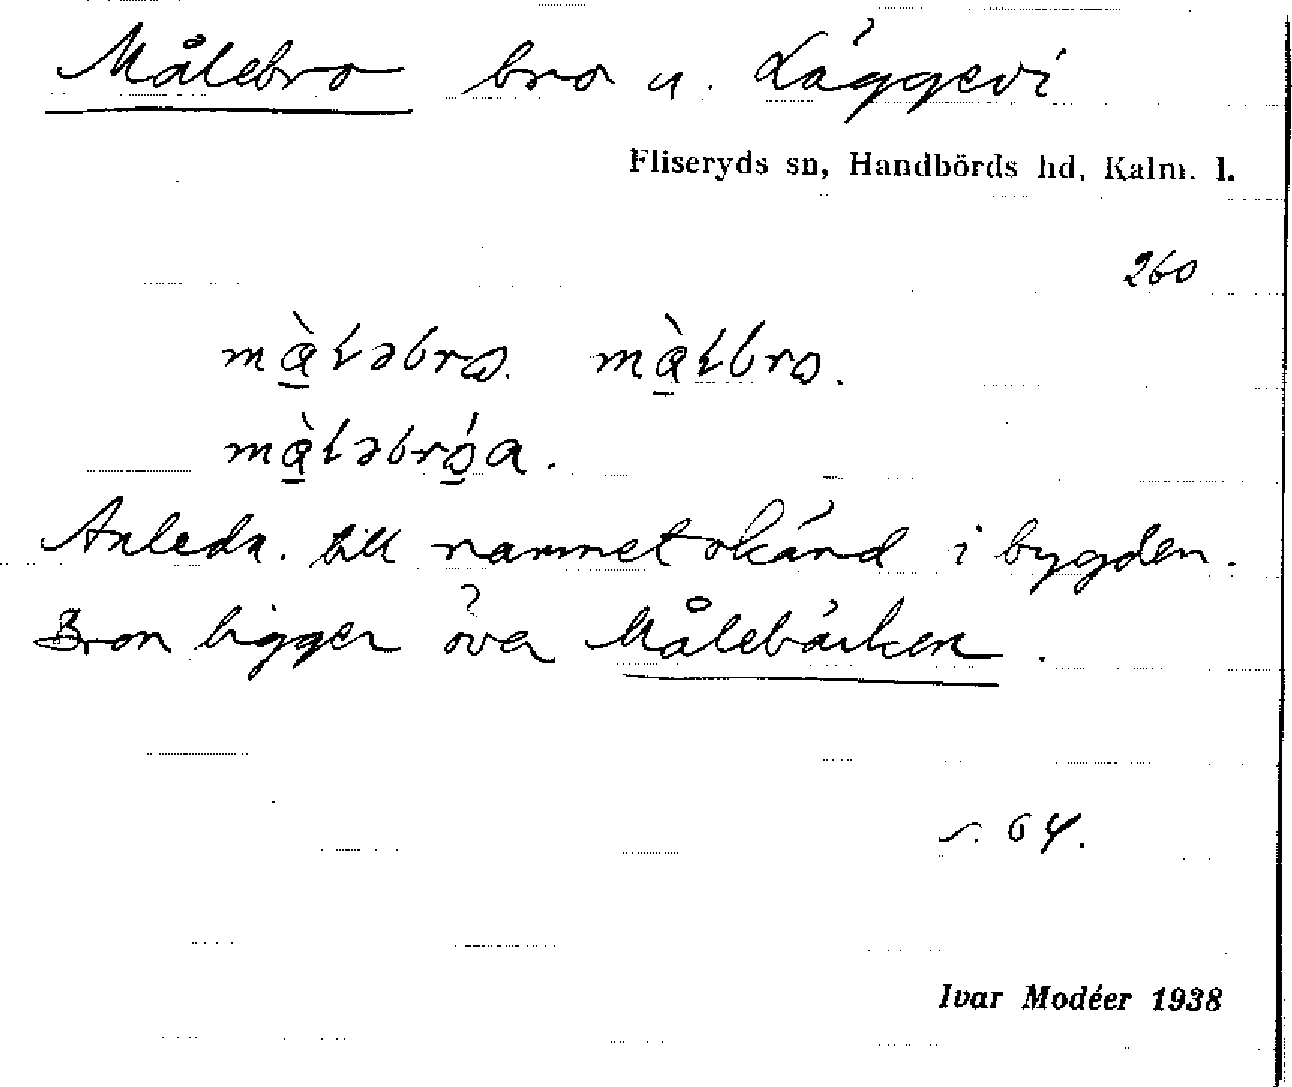 Målebro bro u. Läggevi
Fliseryds sn, Handbörds hd, Kalm. l.
260
Anledn. till namnet okänd i bygden.
Bron ligger över Målebäcken.
s. 64.
Ivar Modéer 1938